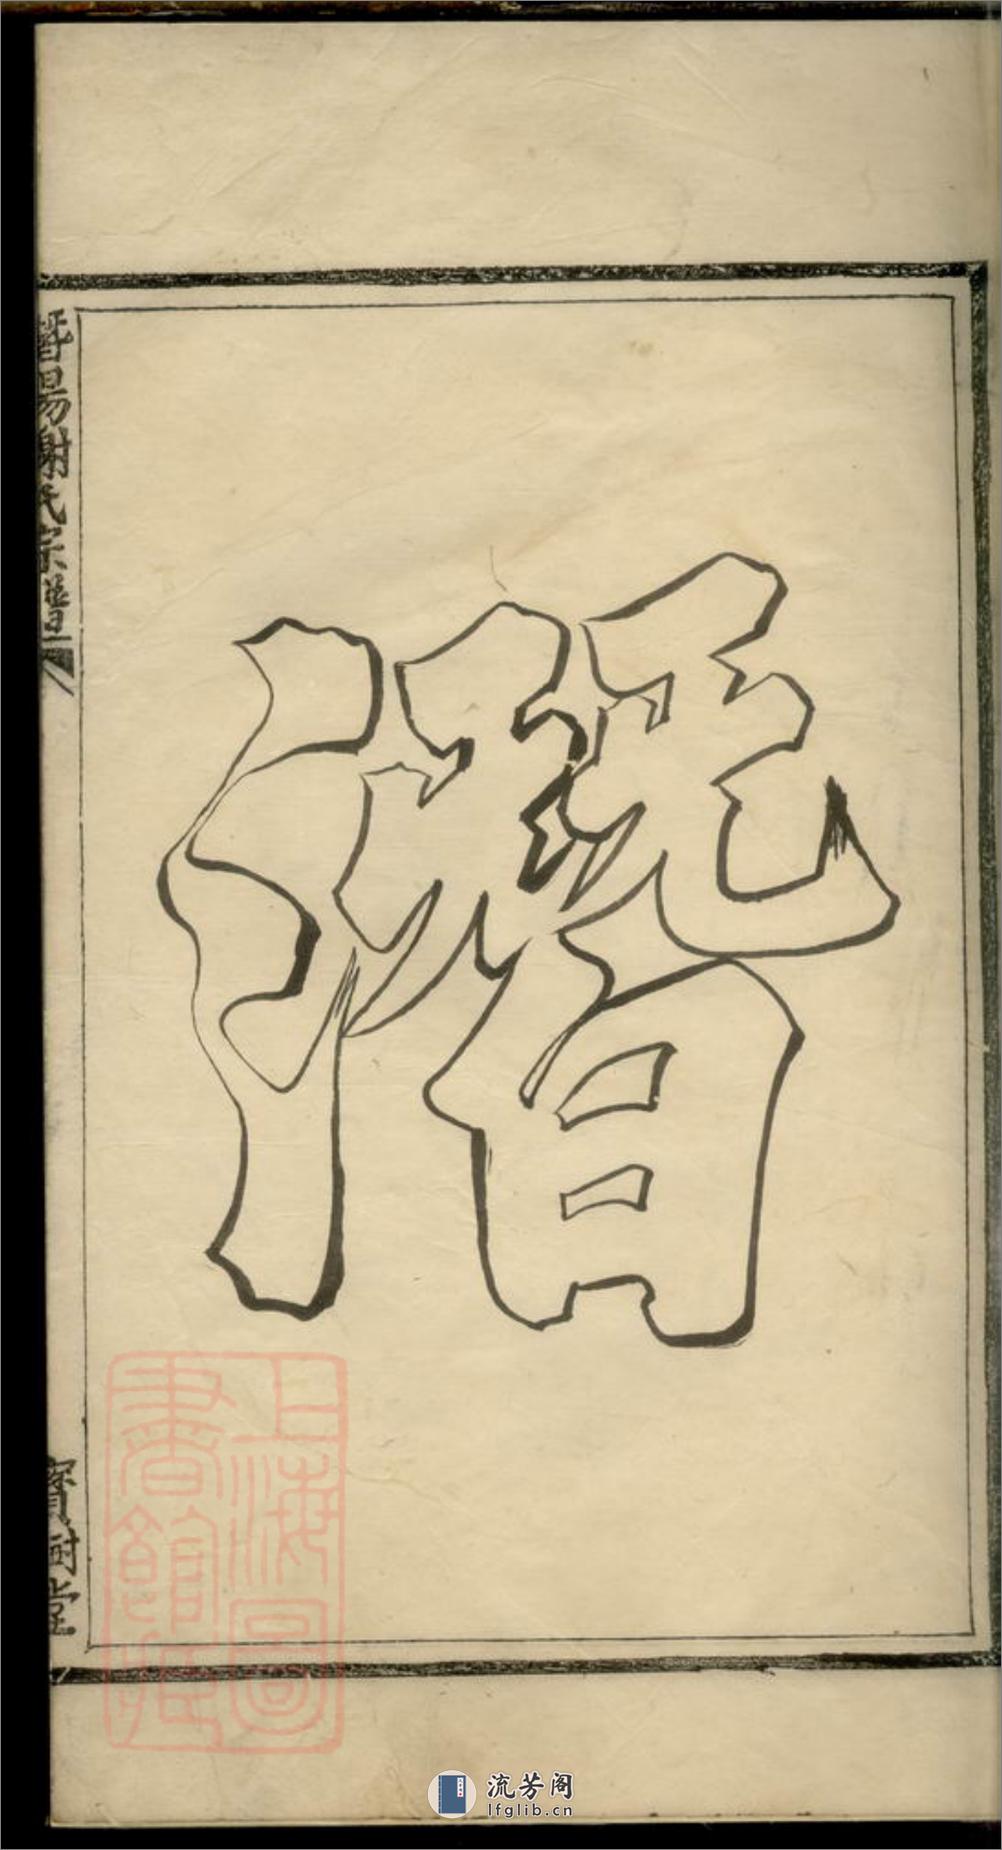 潛
暨陽謝氏宗譜
寶樹堂
上海圖
書館藏
流芳阁
lfglib.cn